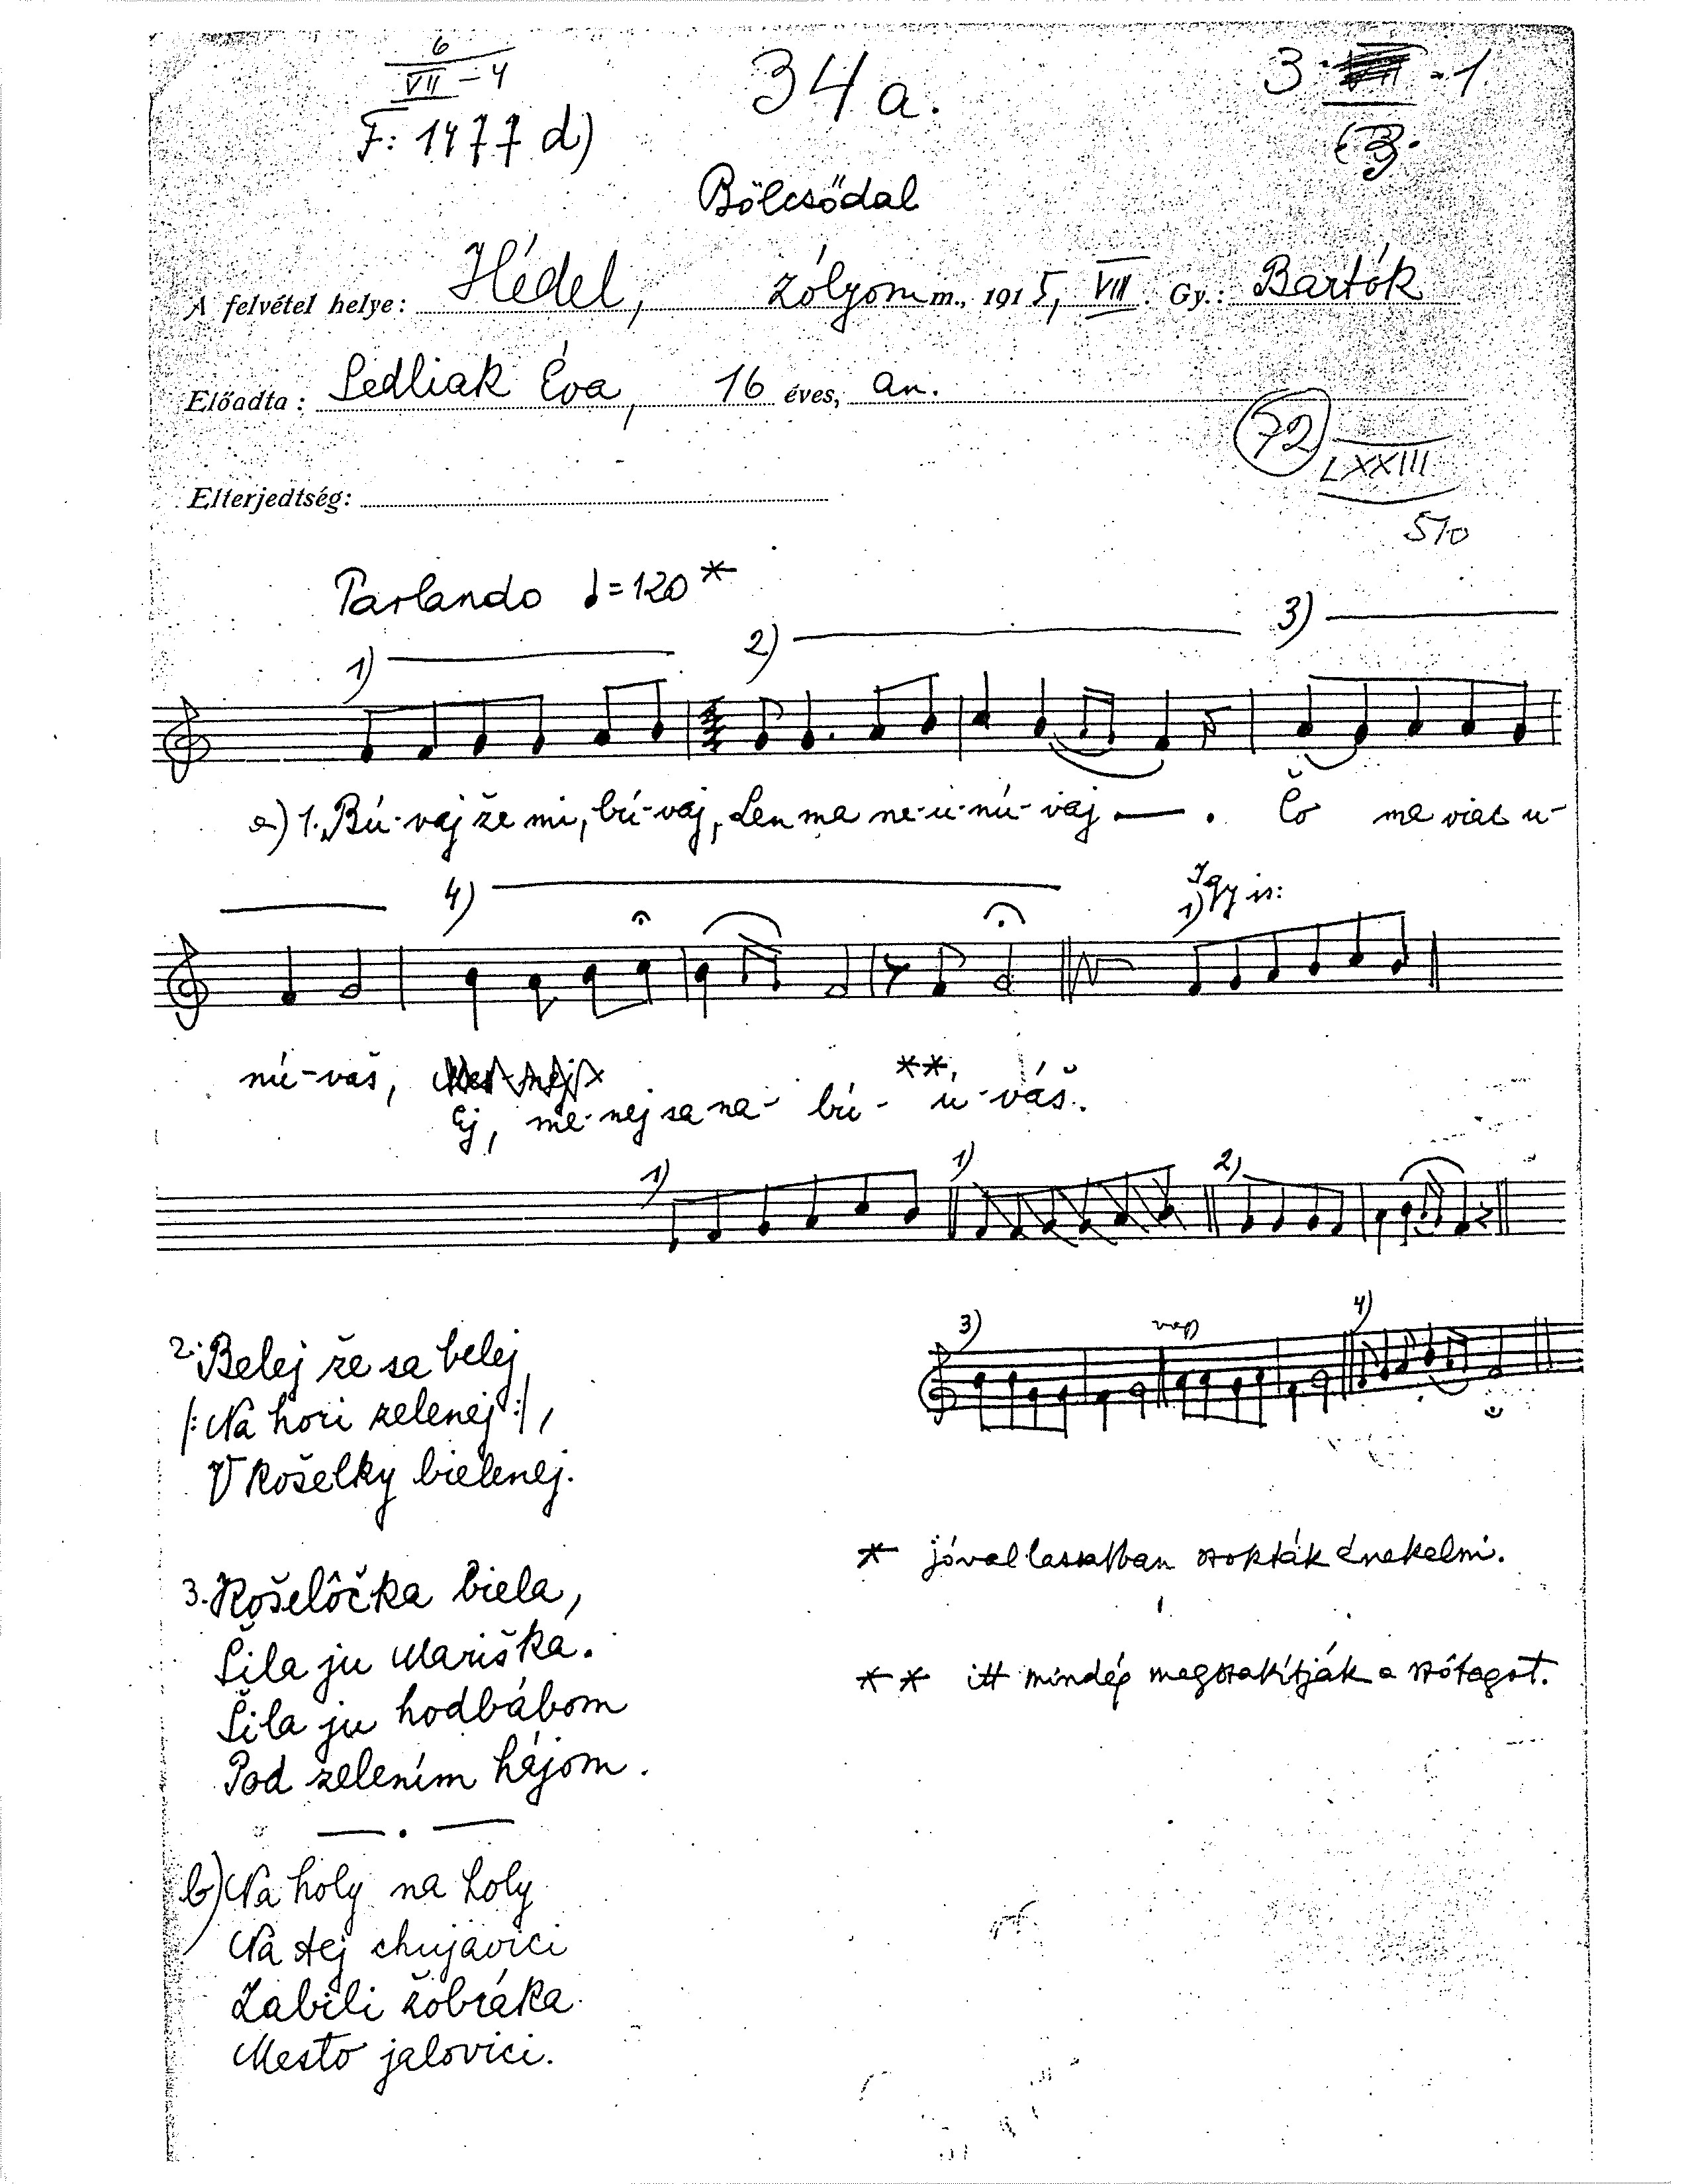 6
VII - 4
34a.
3. - 1
F: 1477 d)
Bölcsődal
A felvétel helye: Hédel, Zólyom m., 1915, VII. Gy.: Bartók
Előadta: Sedliak Éva, 16 éves, an.
72 LXXIII
Elterjedtség:
510
Parlando ♩=120 *
1) 2) 3)
a) 1. Bú-vaj že mi, bú-vaj, Len ma ne-u-nú-vaj —. Čo ma viac u-
4) Igy is:
1)
nú-vaš,
**
Ej, me-nej sa na- bú- ú-váš.
1) 1) 2)
3) vagy 4)
2. Belej že sa belej,
|: Na hori zelenej :|,
V košelky bielenej.
* jóval lassabban szokták énekelni.
3. Košelôčka biela,
Šila ju Mariška.
** itt mindég megszakítják a szótagot.
Šila ju hodbábom
Pod zelením hájom.
b) Na holy na holy
Na tej chujavici
Zabili žobráka
Mesto jalovici.